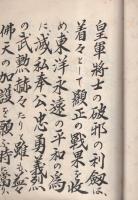 皇軍將士の破邪の利劔は
着々として顯正の戰果を收
め東洋永遠の平和の爲
に滅私奉公忠勇義烈
の武勲赫々たり雖
佛天の加護を